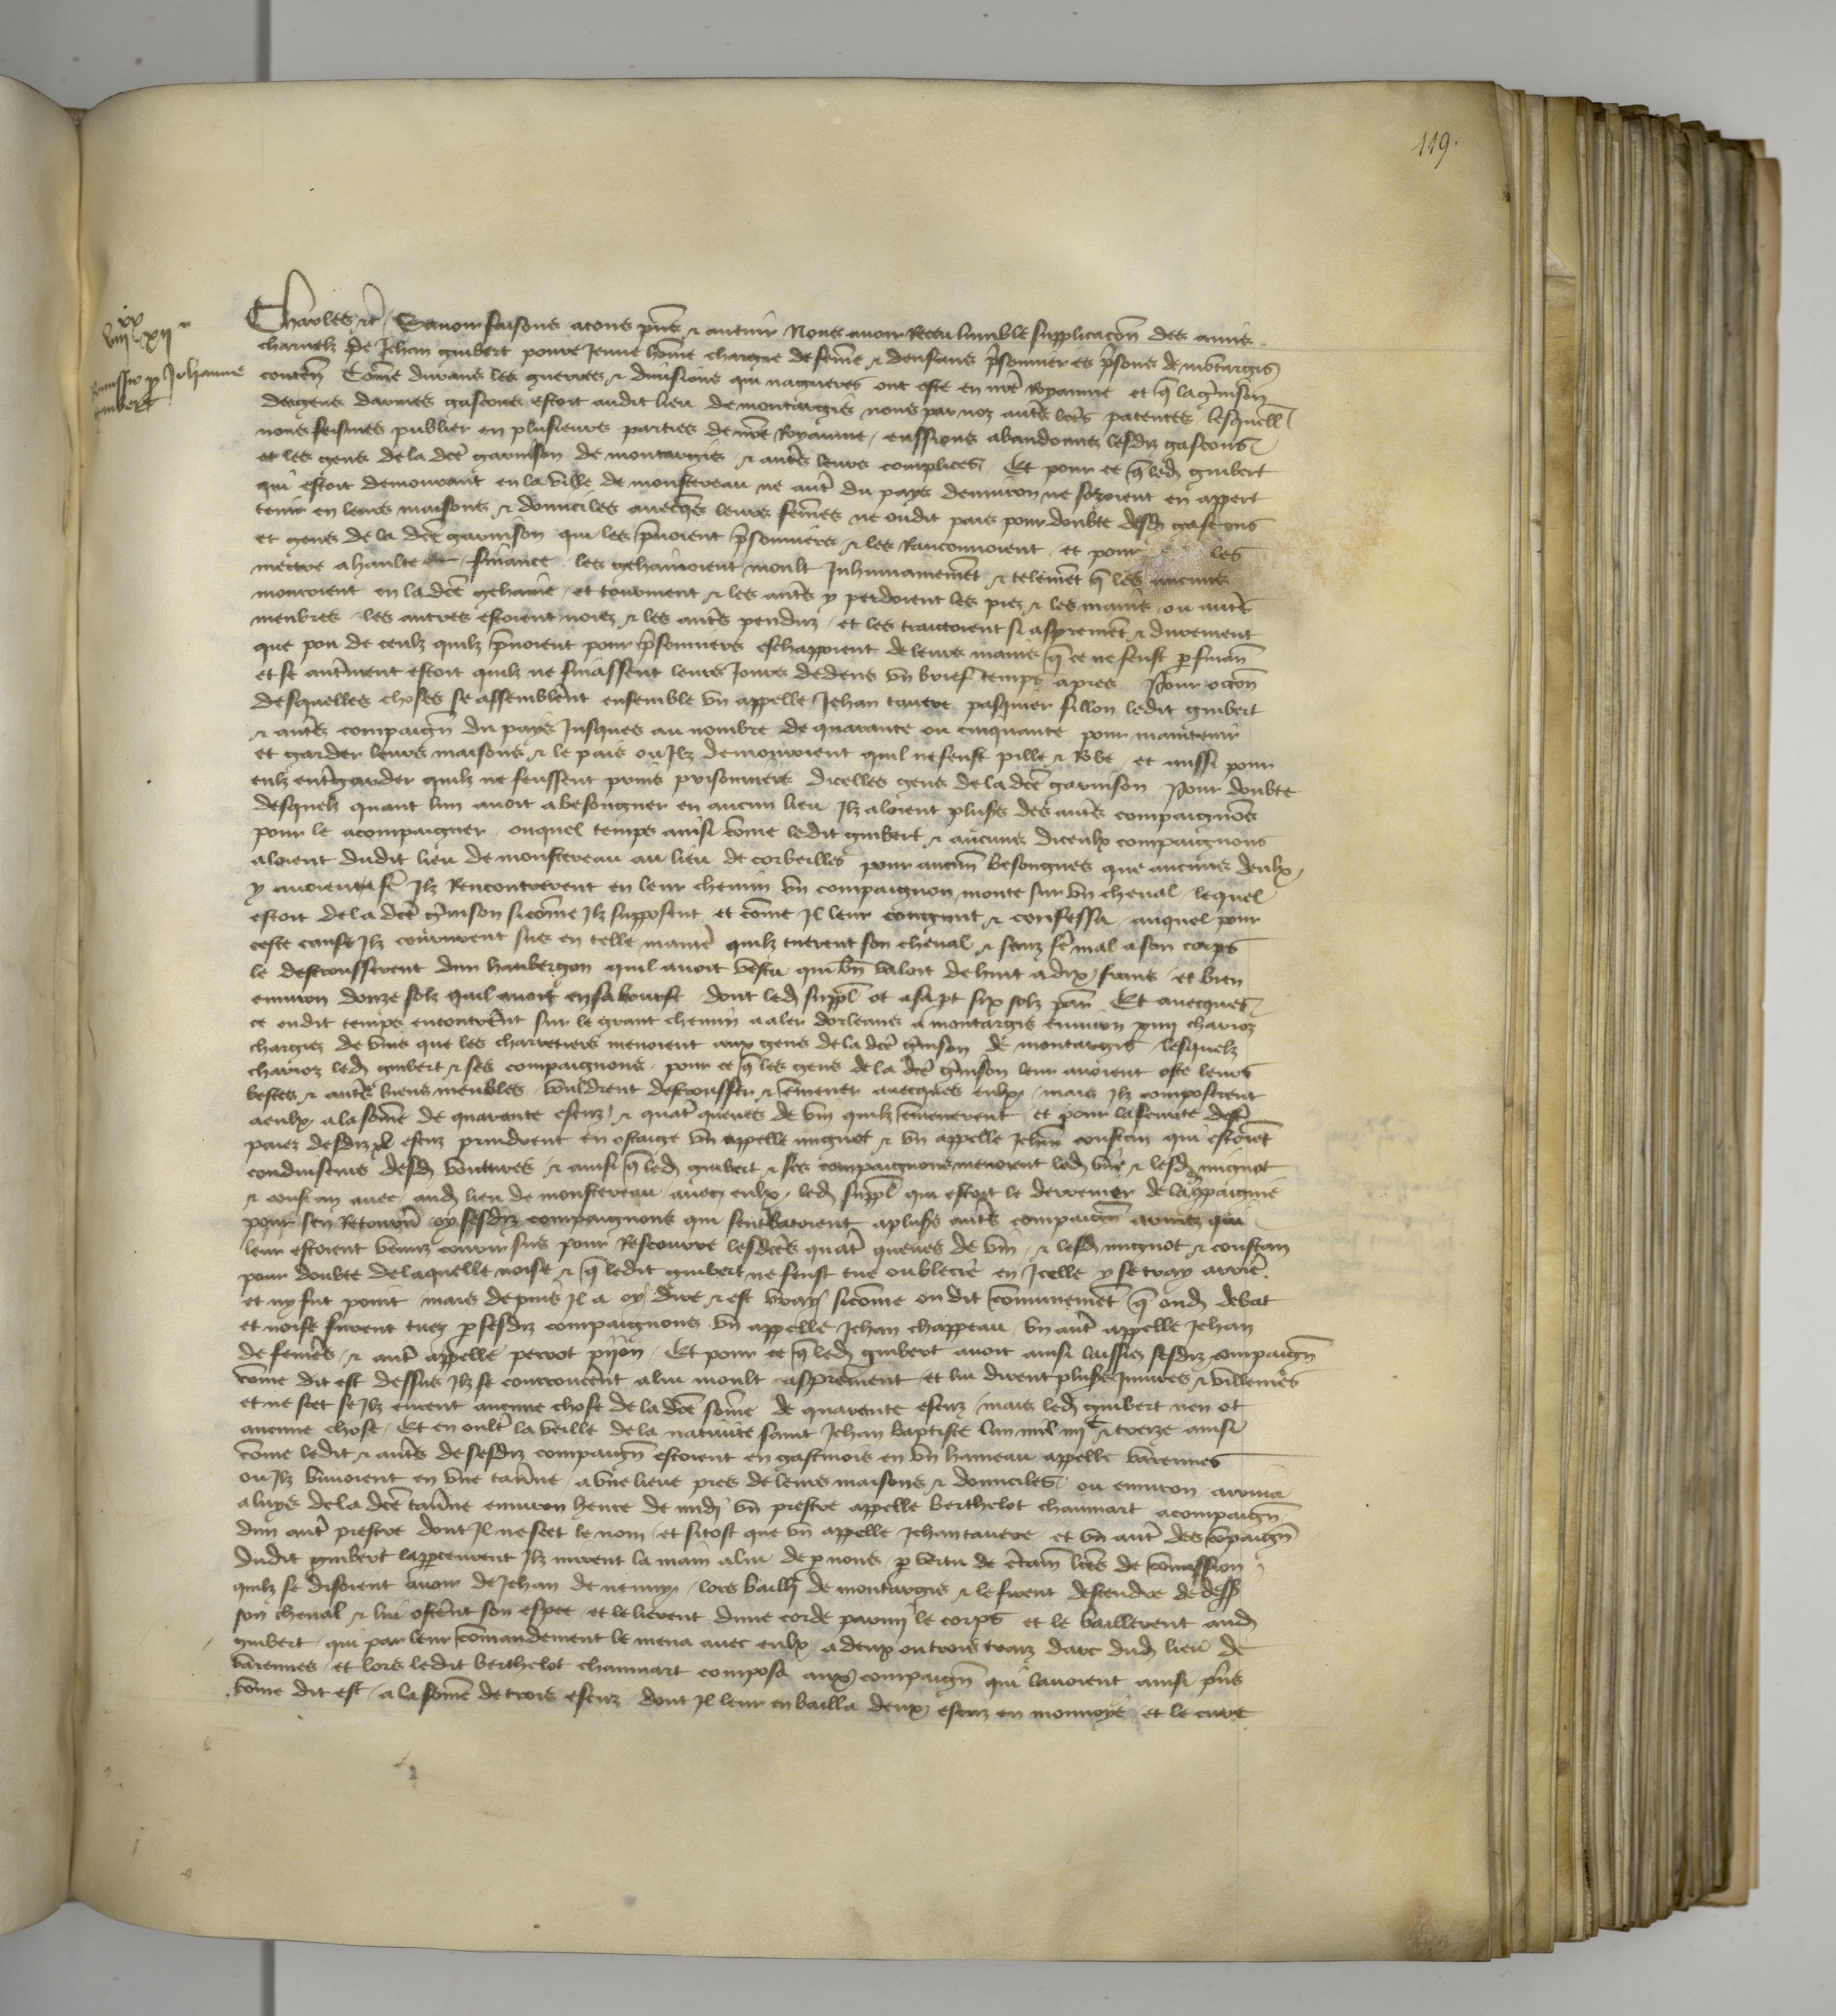 119.
Charles etc. Savoir faisons a tous pñs et avenir Nous avoir Receu lumble supplicacõn des amis
charnelz de Jehan guibert povre Jeune hõme chargie de fẽme et denfans prisonnier es prisons de mõtargis
contẽn Cõme durans les guerres et divisions qui nagueres ont esté en nr̃e Royaume et q̃ la gr̃nison
des gens darmes gascons estoit audit lieu de montargis nous par noz autr̃s lr̃es patentes lesquell
nous feismes publier en plusieurs parties de nr̃e Royaume eussions abandonnez lesdiz gascons
et les gens de la dcẽ garnison de montargis et autr̃s leurs complices Et pour ce q̃ led guibert
qui estoit demourant en la ville de monstereau ne autr̃ du pays denviron ne sozoient en appert
tenir en leurs maisons et domiciles avecqs leurs fẽmes ne oudit pais pour doubte desd gascons
et gens de la dcẽ garnison qui les p̃noient pr̃sonniers et les Ranconnoient et pour les
mettre a haulte finance les gehinoient moult Inhumainemẽt et telemẽt q̃ les aucuns
mouroient en la dcẽ gehaine et tourment et les autr̃s y perdoient les piez et les mains ou autr̃s
menbres les autres estoient noiez et les autr̃s penduz et les traictoient si asprement et durement
que pou de ceulx quilz p̃noient pour pr̃sonniers eschappoient de leurs mains q̃ ce ne feust p finan
et se autr̃ment estoit quilz ne finassent leurs Jours dedens un brief temps apres Pour occõn
desquelles choses se assemblerẽt ensemble un appelle Jehan tavere pasquier fillon ledit guibert
et autr̃s compaign du pays Jusques au nombre de quarante ou cinquante pour maintenir
et garder leurs maisons et le pais ou Ilz demouroient quil ne feust pille et Robe et aussi pour
eulz entr̃garder quilz ne feussent prins prisonniers dicelles gens de la dcẽ garnison Pour doubte
desquelz quant lun avoit a besongner en aucun lieu Ilz aloient plus̃s des autr̃s compaignõs
pour le acompaigner ouquel temps ainsi cõme ledit guibert et aucuns diceulx compaignons
aloient dudit lieu de monstereau au lieu de corbeilles pour aucuñ besongnes que aucuns deulx
y avoient a fẽ Ilz Rencontrerent en leur chemin un compaignon monte sur un cheval lequel
estoit de la dcẽ gr̃nison sicõme Ilz supposent et cõme Il leur congnut et confessa auquel pour
ceste cause Ilz coururent sus en telle manier̃ quilz tuerent son cheval et senz fẽ mal a son corps
le destrousserent dun haubergon quil avoit vestu qui bñ valoit de huit a dix frans et bien
environ douze solz quil avoit en sa bourse dont led suppl ot a sa pt six solz par̃ Et avecques
ce oudit temps encontrerẽt sur le grant chemin a aler dorleans a montargis environ chavioz
chargiez de vins que les charretiers menoient aux gens de la dcẽ gr̃nison de montargis lesquelz
charioz led guibert et ses compaignons pour ce q̃ les gens de la dcẽ gr̃nison leur avoient osté leurs
bestes et autr̃s biens meubles vouldrent destrousser et ẽmener avecques eulx mais Ilz composerent
a eulx a la sõme de quarante escuz et quatr̃ queues de vin quilz ẽmenerent et pour la seurte destr̃
paiez desdiz xl escuz prindrent en ostaige un appelle mignot et un appelle Jehan constan qui estoiẽt
conduiseurs desd voitures et ainsi q̃ led guibert et ses compaignons menoient led vin et lesd mignot
et constan avec aud lieu de monstereau avec eulx led suppl qui estoit le derrenier de la cõpaignie
pour sen Retourner oy sesdiz compaignons qui sentrbatoient a plus̃s autr̃s compaign armez qui
leur estoient venuz courir sus pour Rescourre lesdctes quatr̃ queues de vin et lesd mignot et constan
pour doubte de laquelle noise et q̃ ledit guibert ne feust tue ou blecie en Icelle y se tray arrier̃
et ny fut point mais depuis Il a oy dire et est vray sicõme on dit cõmunemẽt q̃ oud debat
et noise furent tuez p sesdiz compaignons un appelle Jehan chappeau un autr̃ appelle Jehan
de et autr̃ appelle perrot pijon Et pour ce q̃ led guibert avoit ainsi laissiez sesdiz compaign
cõme dit est dessus Ilz se courroucerẽt a lui moult asprement et lui dirent plus̃s Injures et villenies
et ne scet se Ilz eurent aucune chose de la dcẽ sõme de quarante escuz mais led guibert nen ot
aucune chose Et en oultr̃ la veille de la nativite saint Jehan baptiste lan mil iiijc et treize ainsi
cõme ledit et autr̃s de sesdiz compaign estoient en gastinois en un hameau appelle varennes
ou Ilz buvoient en une taver̃ne a une lieue pres de leurs maisons et domiciles ou environ arriva
a luys de la dcẽ taver̃ne environ heure de midj un prestre appelle berthelot chaumart acompaign
dun autr̃ prestre dont Il ne scet le nom et si tost que un appelle Jehan tavere et un autr̃ des cõpaign
dudit guibert lapperceurent Ilz mirent la main a lui de p nous p vertu de ctain̄ lr̃es de cõmission
quilz se disoient avoir de Jehan de lors bailli de montargis et le firent descendre de dess
son cheval et lui osterẽt son espee et le lierent dune corde parmi le corps et le baillerent aud
guibert qui par leur cõmandement le mena avec eulx a deux ou trois traiz darc dud lieu de
varennes et lors ledit berthelot chaumart composa aux compaign qui lavoient ainsi pr̃ns
cõme dit est a la sõme de trois escuz dont Il leur en bailla deux escuz en monnoye et le cure
Remissio p Johanne
guibert